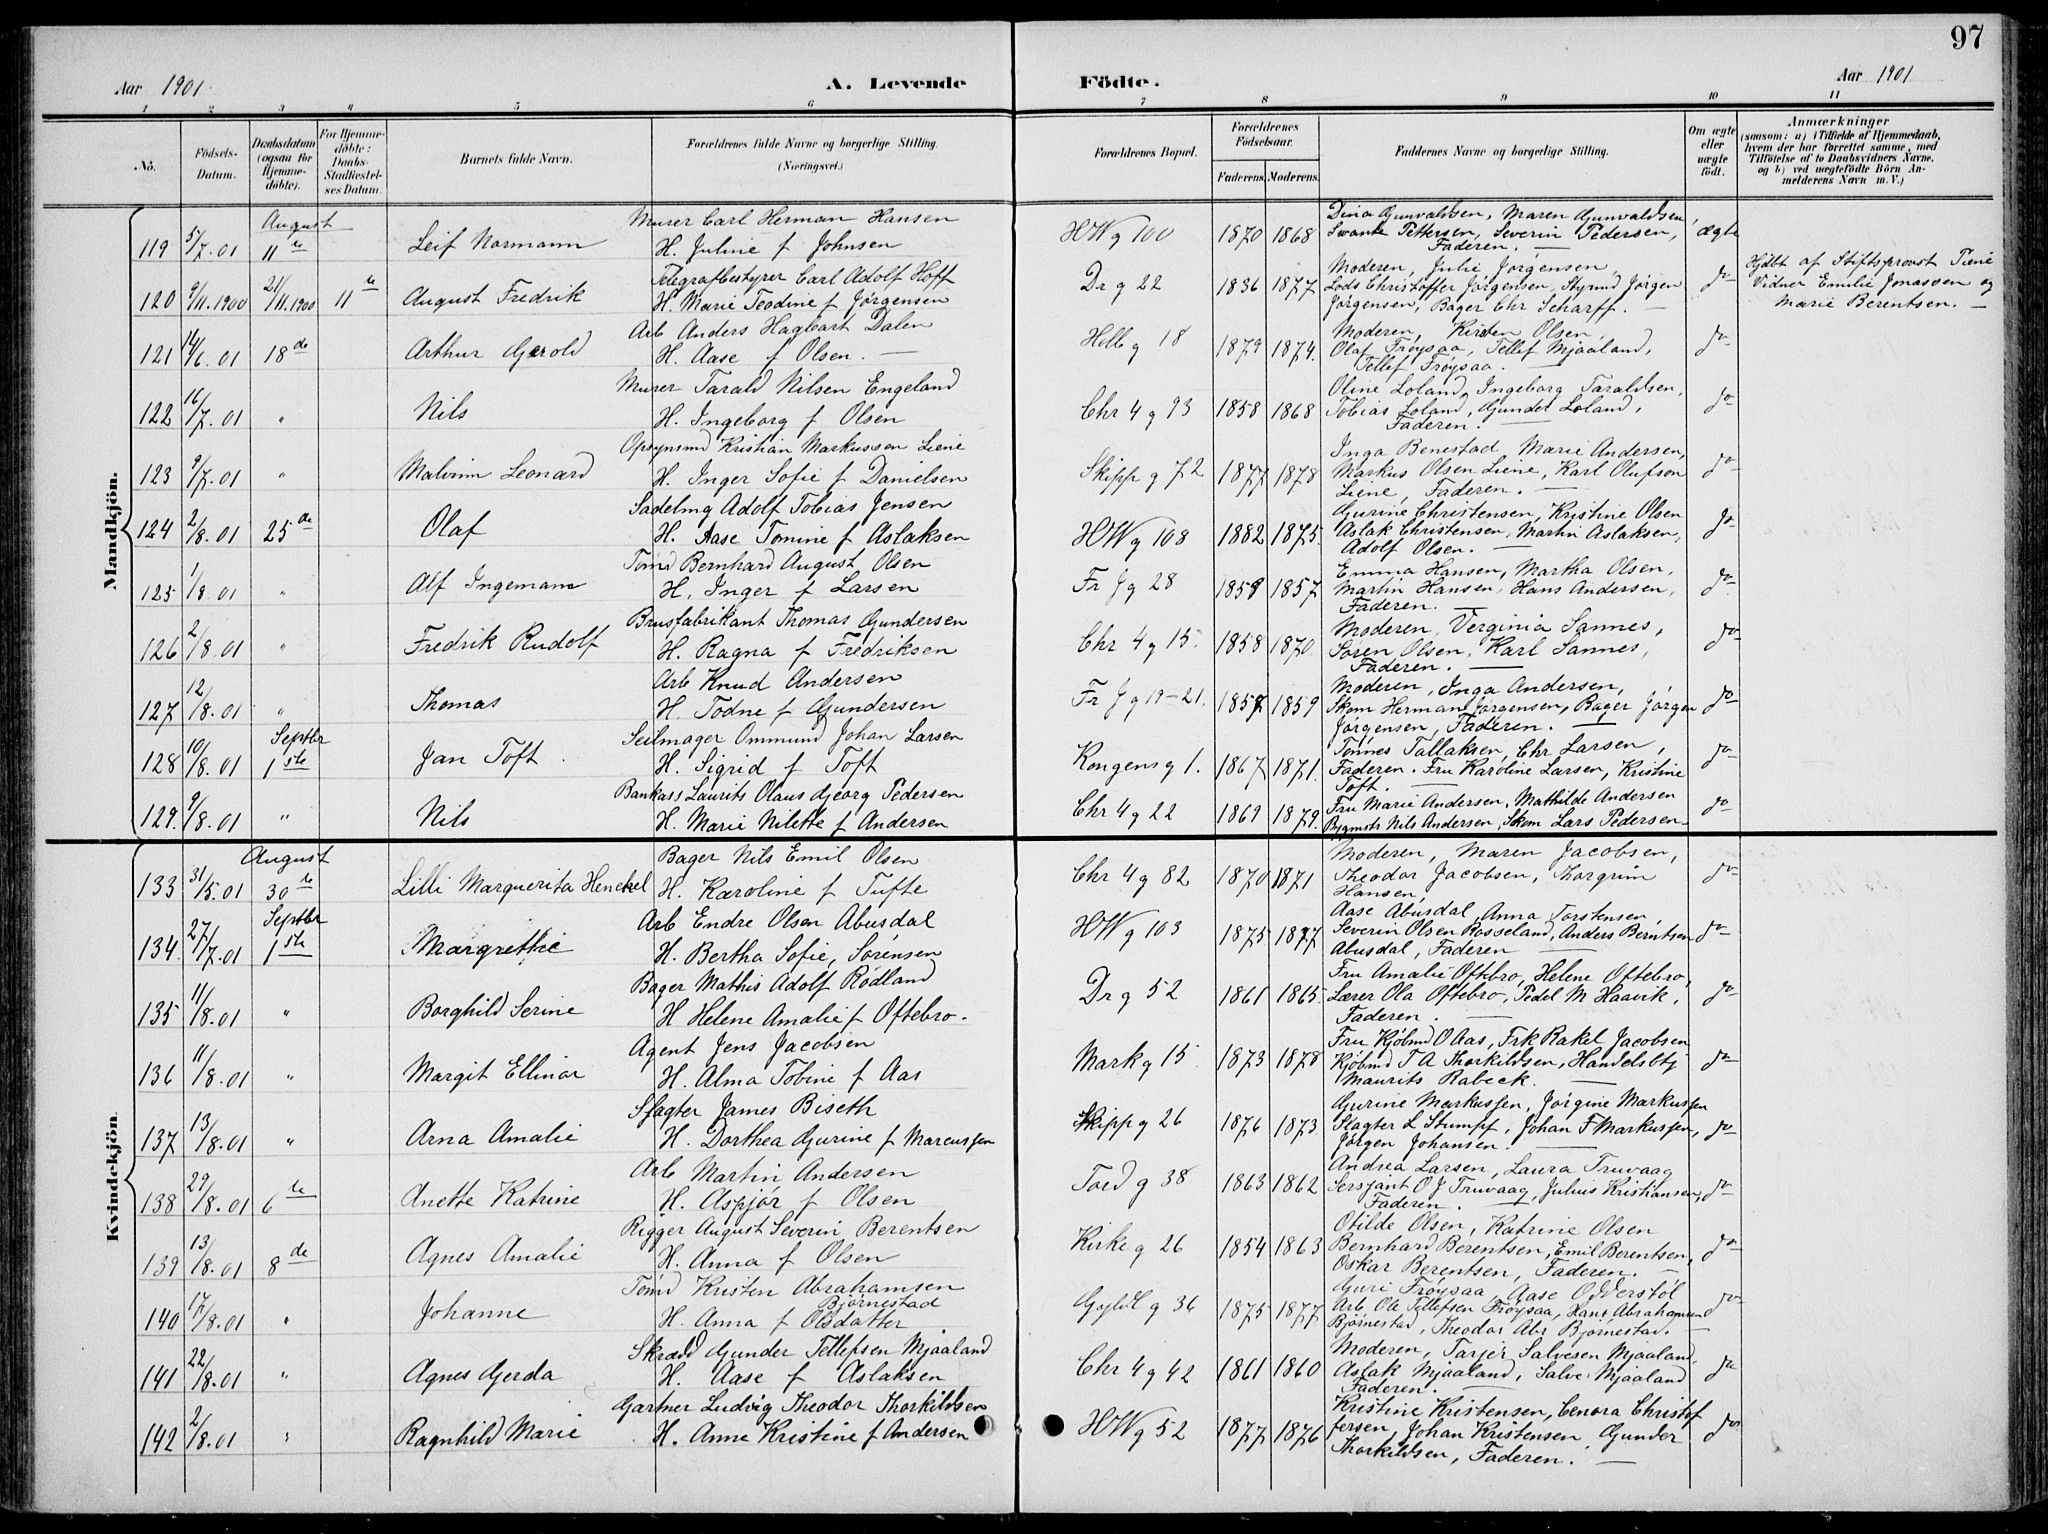 97
Aar 1901
A. Levende
Födte.
Aar 1901
1 2 3 4 5 6 7 8 9 10 11
No.
Födsels-Datum.
Daabsdatum (ogsaa for Hjemme-döbte).
For Hjemme-döbte: Daabs-Stadfæstel-ses Datum.
Barnets fulde Navn.
Forældrenes fulde Navne og borgerlige Stilling. (Næringsvei.)
Forældrenes Bopæl.
Forældrenes Födselsaar.
Faderens. Moderens.
Faddernes Navne og borgerlige Stilling.
Om ægte eller uægte födt.
Anmærkninger
(saasom: a) i Tilfælde af Hjemmedaab, hvem der har forrettet samme, med Tilföielse af to Daabsvidners Navne, og b) ved uægtefödte Börn Anmelderens Navn m. V.)
Mandkjön.
August
119 5/7.01 11te Leif Normann Murer Carl Herman Hansen
H. Juline f Johnsen HWg 100 1870 1868 Dina Gunvaldsen, Maren Gunvaldsen,
Swante Pettersen, Severin Pedersen,
Faderen. ægte
120 9/11.1900 21/11.1900 11te August Fredrik Telegrafbestyrer Carl Adolf Hoff
H. Marie Teodine f Jørgensen Dr g 22 1836 1877 Moderen, Julie Jørgensen
Lods Christoffer Jørgensen, Styrmd Jørgen
Jørgensen, Bager Chr Scharff. do
Hjdbt af Stiftsprovst Tiene
Vidner Emilie Jonassen og
Marie Berentsen.
121 14/6.01 18de Arthur Gerold Arb Anders Hagbart Dalen
H. Aase f Olsen. Helle g 18 1879 1874. Moderen, Kirsten Olsen
Olaf Frøysaa, Tellef Mjaaland,
Tellef Frøysaa. do
122 16/7.01 " Nils Murer Tarald Nilsen Engeland
H. Ingeborg f Olsen Chr 4 g 93 1858 1868 Oline Loland, Ingeborg Taraldsen,
Tobias Loland, Gunder Loland,
Faderen. do
123 9/7.01 " Malvinn Leonard Opsynsmd Kristian Markussen Liene
H. Inger Sofie f Danielsen Skipp g 72 1877 1878 Inga Benestad, Marie Andersen,
Markus Olsen Liene, Karl Olufson
Liene, Faderen. do
124 2/8.01 25de Olaf Sadelmg Adolf Tobias Jensen
H. Aase Tomine f Aslaksen HWg 108 1882 1875. Gurine Christensen, Kristine Olsen
Aslak Christensen, Martin Aslaksen,
Adolf Olsen. do
125 1/8.01 " Alf Ingemann Tømd Bernhard August Olsen
H. Inger f Larsen Fr J g 28 1858 1857 Emma Hansen, Martha Olsen,
Martin Hansen, Hans Andersen,
Faderen. do
126 2/8.01 " Fredrik Rudolf Brusfabrikant Thomas Gundersen
H. Ragna f Fredriksen Chr 4 g 15. 1858 1870. Moderen, Verginia Sannes,
Søren Olsen, Karl Sannes,
Faderen. do
127 12/8.01 " Thomas Arb Knud Andersen
H. Todne f Gundersen Fr J g 19-21. 1857 1859 Moderen, Inga Andersen,
Skom Herman Jørgensen, Bager Jørgen
Jørgensen, Faderen. do
Septbr
128 10/8.01 1ste Jan Toft Seilmager Ommund Johan Larsen
H. Sigrid f Toft Kongens g 1. 1867 1871. Tønnes Tallaksen, Chr Larsen,
Faderen. Fru Karoline Larsen, Kristine
Toft. do
129. 9/8.01 " Nils Bankass Laurits Olaus Georg Pedersen
H. Marie Nilette f Andersen Chr 4 g 22 1869 1879. Fru Marie Andersen, Mathilde Andersen
Bygmstr Nils Andersen, Skom Lars Pedersen do
Kvindekjön
August
133 31/5.01 30te Lilli Marguerita Henckel Bager Nils Emil Olsen
H. Karoline f Tufte Chr 4 g 82 1870 1871 Moderen, Maren Jacobsen,
Theodor Jacobsen, Thorgrim
Hansen, do
Septbr
134. 27/7.01 1ste Margrethe Arb Endre Olsen Abusdal
H. Bertha Sofie, Sørensen HWg 103 1875 1877 Aase Abusdal, Anna Torstensen,
Severin Olsen Rosseland, Anders Berntsen
Abusdal, Faderen do
135 11/8.01 " Borghild Serine Bager Mathis Adolf Rødland
H Helene Amalie f Oftebro. Dr g 52 1861 1865. Fru Amalie Oftebro, Helene Oftebro,
Lærer Ola Oftebro, Pedel M Haavik,
Faderen. do
136 11/8.01 " Margit Ellinor Agent Jens Jacobsen
H. Alma Tobine f Aas Mark g 15 1873 1878 Fru Kjøbmd O Aas, Frk Rakel Jacobsen
Kjøbmd T A Thorkildsen, Handelsbtj
Maurits Rabeck. do
137 13/8.01 " Arna Amalie Slagter James Biseth
H. Dorthea Gurine f Marcussen Skipp g 26 1876 1873 Gurine Markussen, Jørgine Markussen
Slagter L Stumpf, Johan F Markussen,
Jørgen Johansen. do
138 29/8.01 6te Anette Katrine Arb Martin Andersen
H. Aspjør f Olsen Tord g 38 1863 1862 Andrea Larsen, Laura Truvaag
Sersjant O J Truvaag, Julius Kristiansen,
Faderen. do
139 13/8.01 8de Agnes Amalie Rigger August Severin Berentsen
H. Anna f Olsen Kirke g 26 1854 1863 Otilde Olsen, Katrine Olsen
Bernhard Berentsen, Emil Berentsen,
Oskar Berentsen, Faderen. do
140 17/8.01 " Johanne Tømd Kristen Abrahamsen
Bjørnestad
H. Anna f Olsdatter Gyldl g 36 1875 1877 Guri Frøysaa, Aase Odderstøl
Arb. Ola Tellefsen Frøysaa, Hans Abrahamsen
Bjørnestad, Theodor Abr Bjørnestad. do
141 22/8.01 " Agnes Gerda Skrædd Gunder Tellefsen Mjaaland
H. Aase f Aslaksen Chr 4 g 42 1861 1860 Moderen, Tarjer Salvesen Mjaaland,
Aslak Mjaaland, Salve Mjaaland
Faderen. do
142 2/8.01 " Ragnhild Marie Gartner Ludvig Theodor Thorkildsen
H. Anne Kristine f Andersen HWg 52 1877 1876 Kristine Kristensen, Cenora Christof
fersen, Johan Kristensen, Gunder
Thorkildsen, Faderen. do